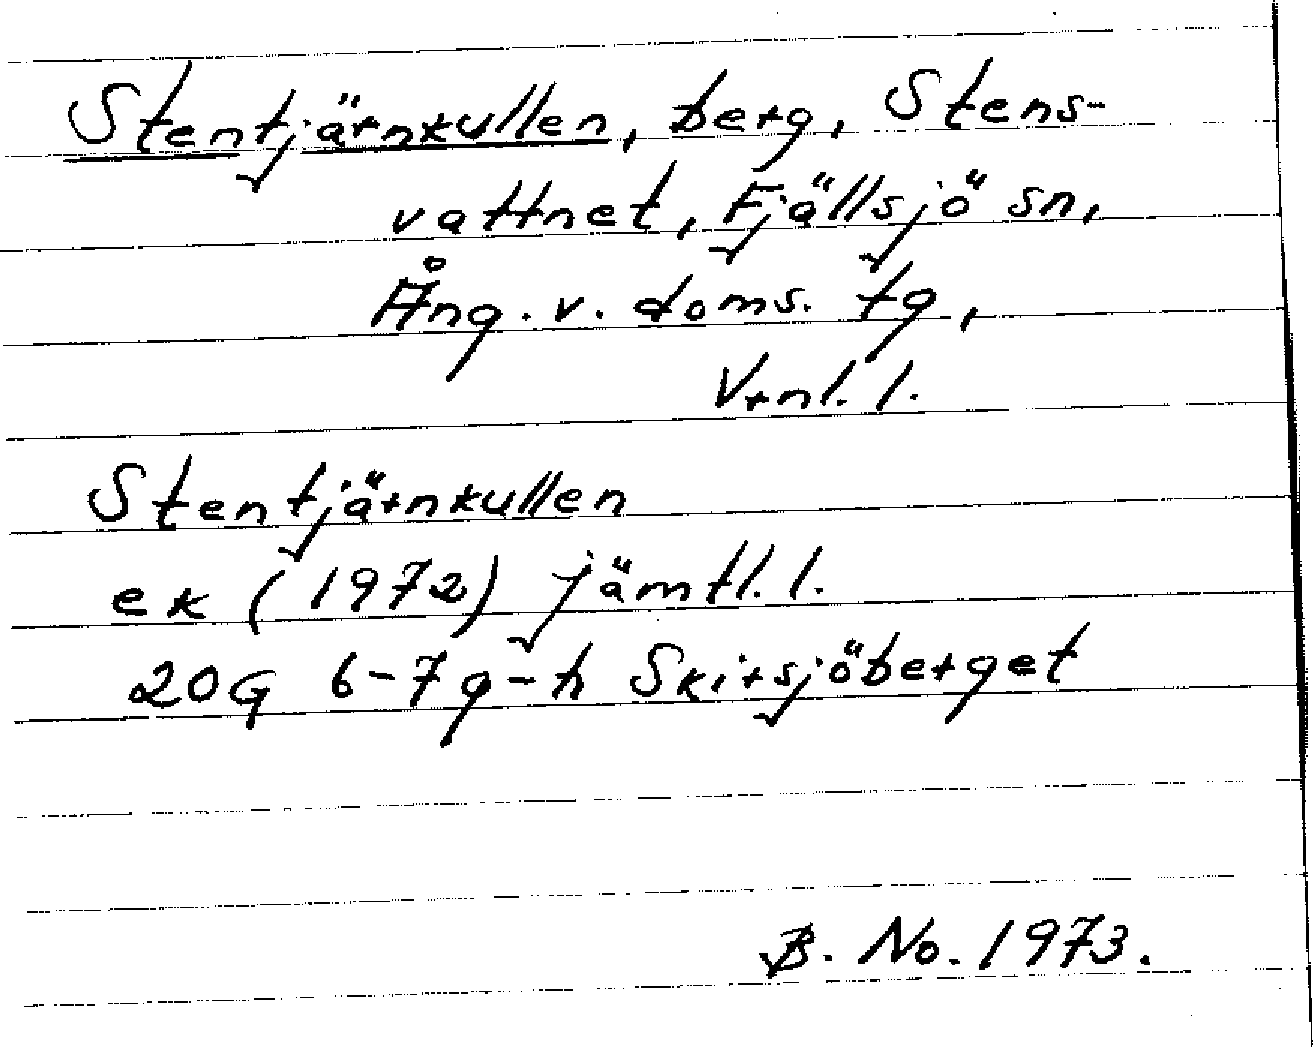 Stentjärnkullen, berg, Stens-
vattnet, Fjällsjö sn,
Ång. v. doms. tg,
Vrnl. l.
Stentjärnkullen
ek (1972) Jämtl. l.
20G 6-7g-h Skirsjöberget
B. No. 1973.